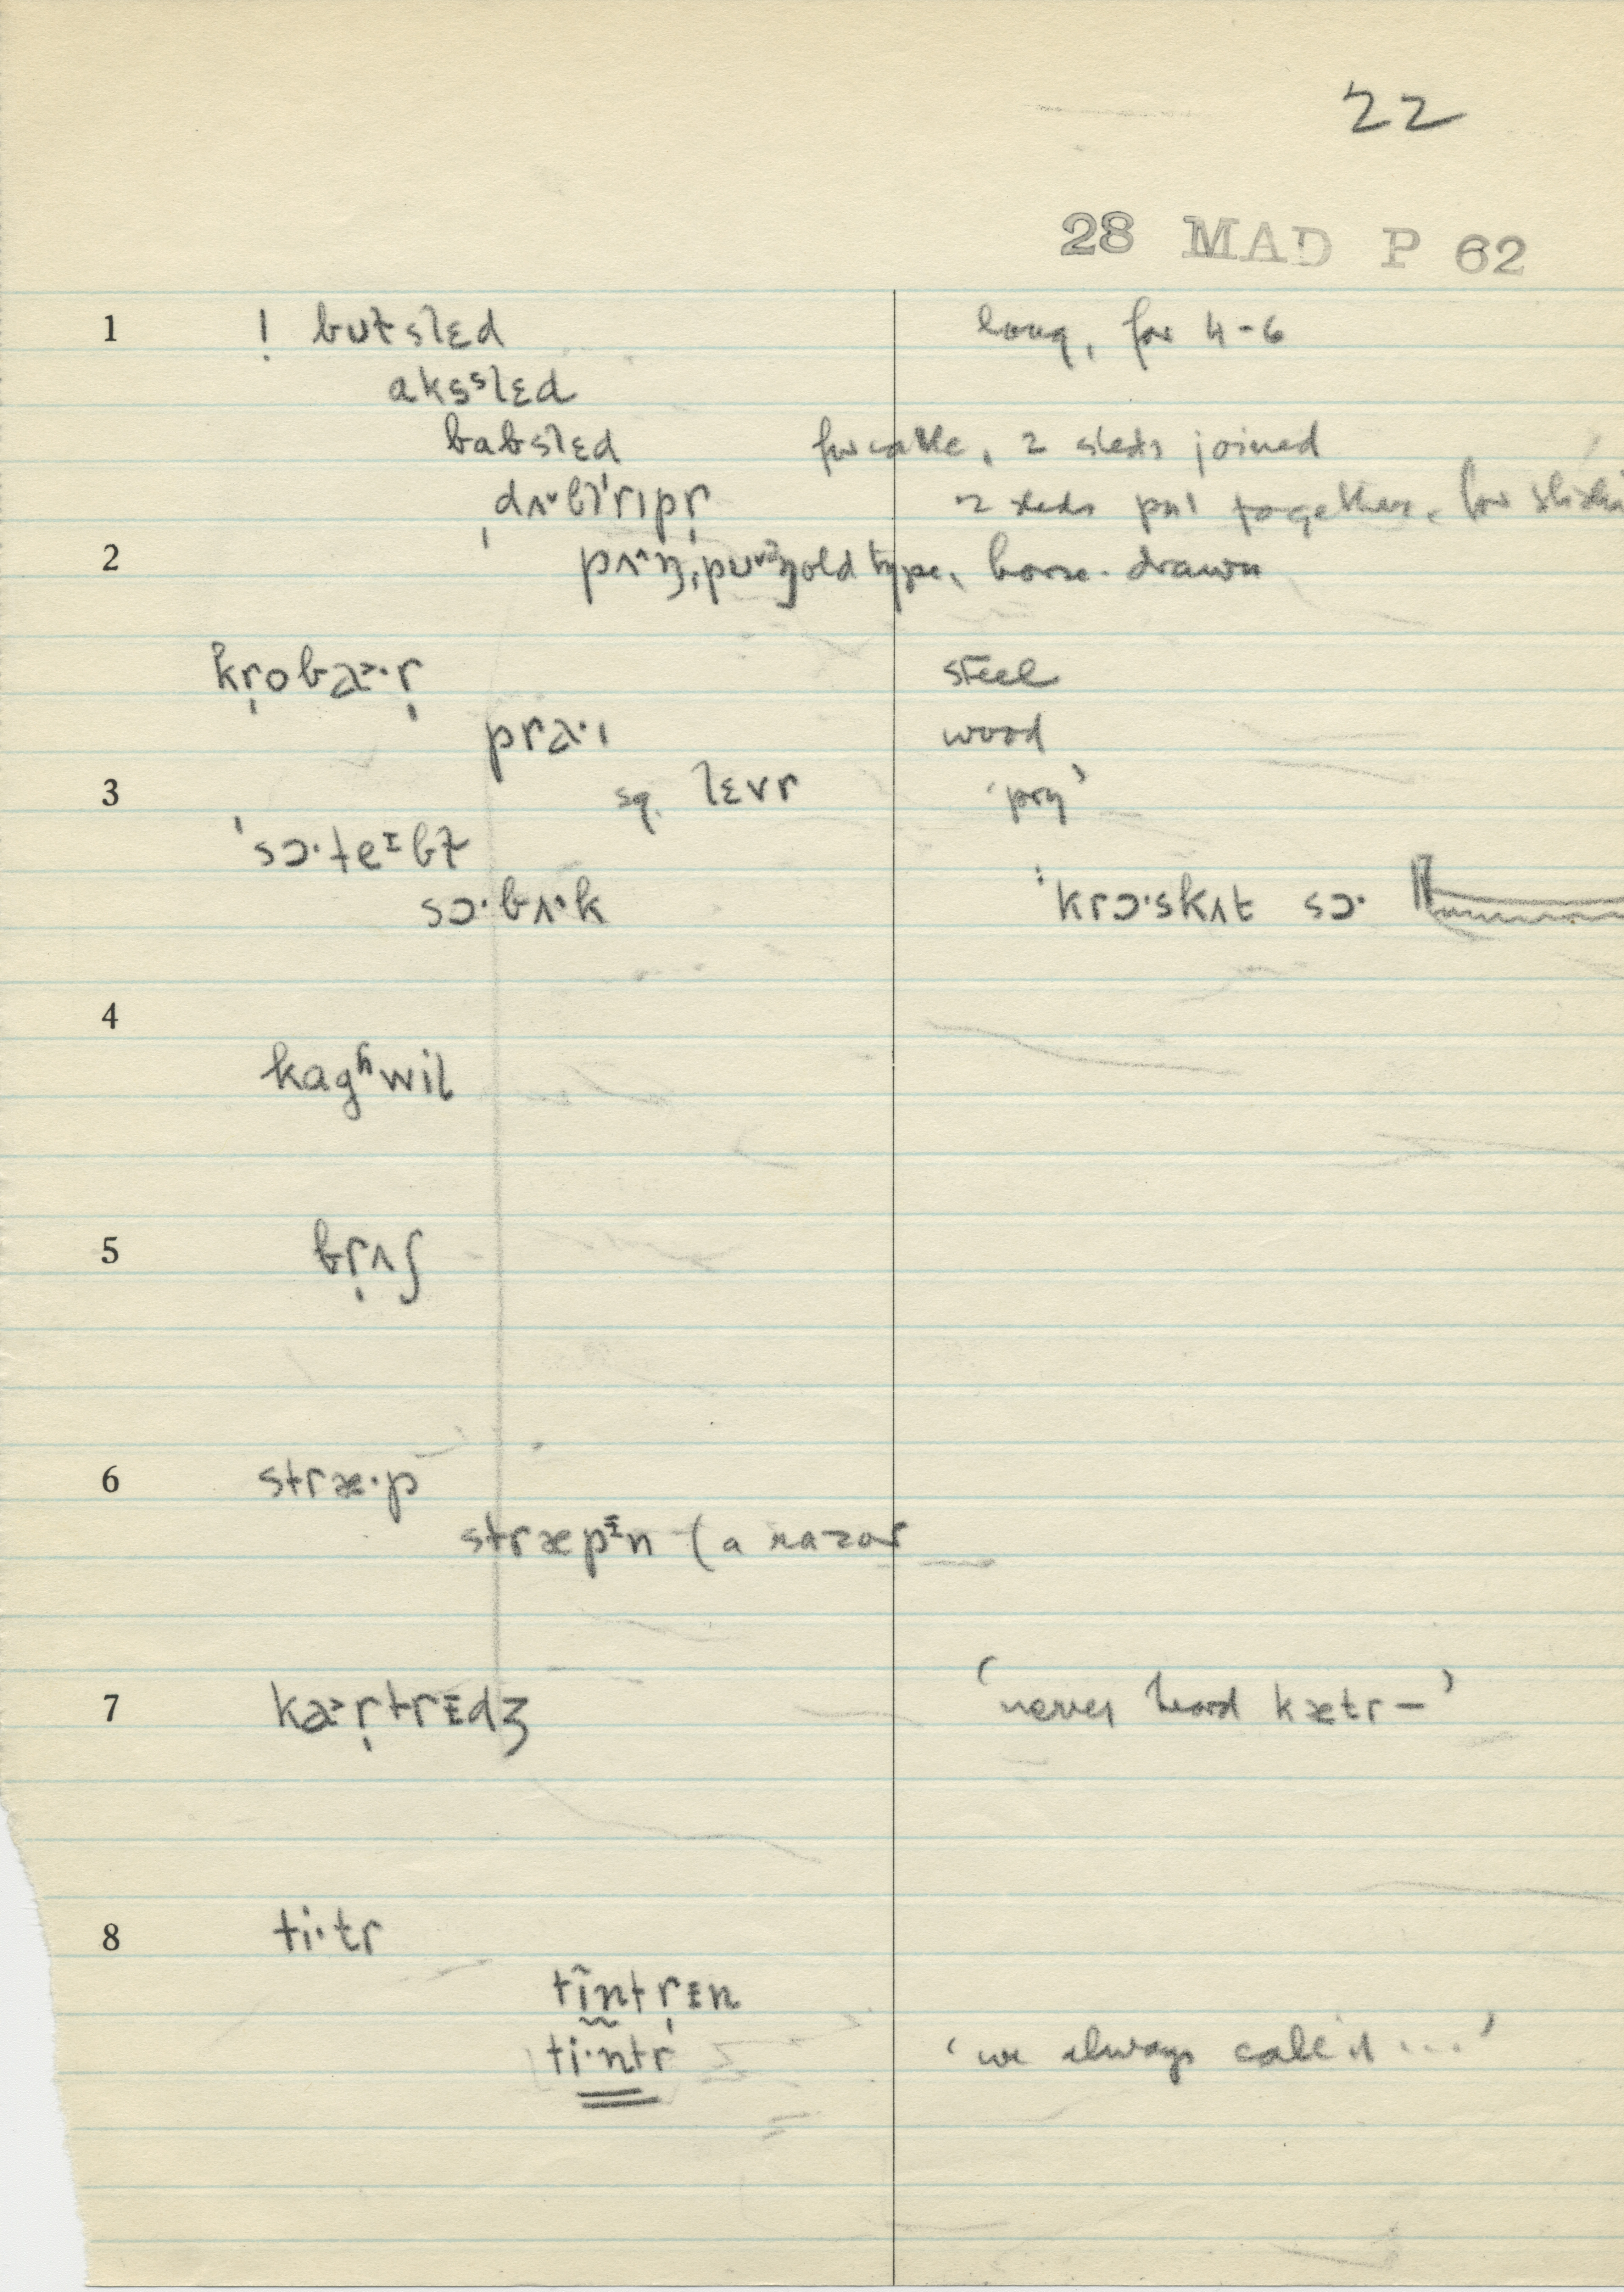 22
28 MAD P 62
1 ! bʊtslɛd long, for 4-6
aksˢlɛd
babslɛd for cattle, 2 sleds joined
2 sleds put together, for
2 old type, horse-drawn
kr̩obaə·r̩ steel
pra·ɪ wood
3 sq. lɛvr 'pry'
ˈsɔ·teᶦbɫ
sɔ·bʌ·k ˈkrɔ·skʌt sɔ·
4
kagʱwil
5 br̩ʌʃ
6 stræ·p
stræpᵻn (a razor
7 ka˃r̩trᵻdʒ 'never heard kætr—'
8 ti·tr
tîntr̩ᵻn
ti·ntr 'we always call it ...'